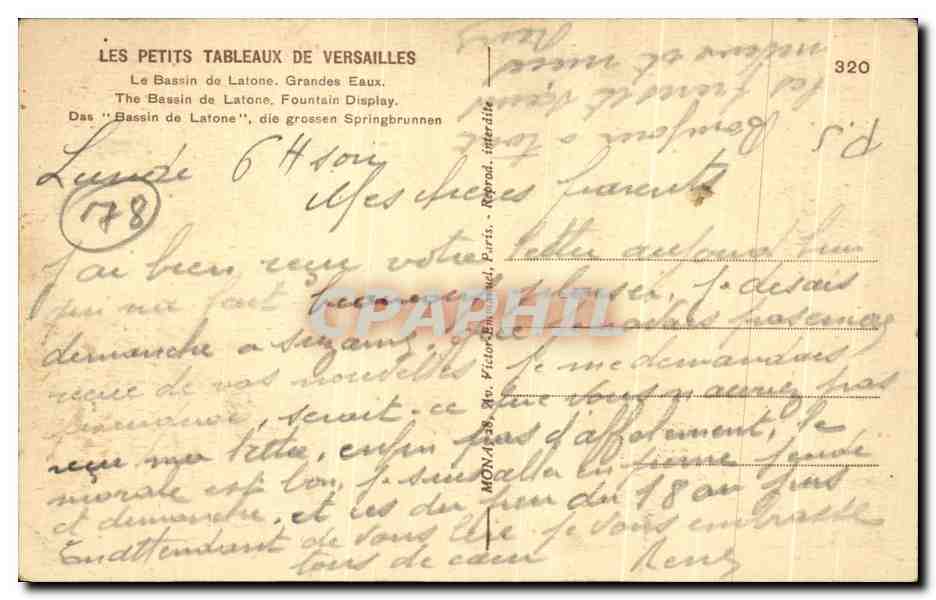 LES PETITS TABLEAUX DE VERSAILLES
Le Bassin de Latone. Grandes Eaux.
The Bassin de Latone, Fountain Display.
Das "Bassin de Latone", die grossen Springbrunnen
320
P.S. Bonjour a tout
Lundi 6 H soir
Mes chères parents
78
J'ai bien reçu votre lettre aujourd'hui
qui ma fait beaucoup plaisir, je desais
demanche a que je navais pas encore
reçue de vos nouvelles. Je me demandais
serait-ce que vous n'auriez pas
reçu ma lettre, enfin pas d'affolement, le
morale est bon. Je suis allé en
et demanche, et ces du
En attendant de vous lire je vous embrasse
tous de cœur René
MONA, 18, Av. Victor-Emmanuel, Paris. - Reprod. interdite.
CPAPHIL